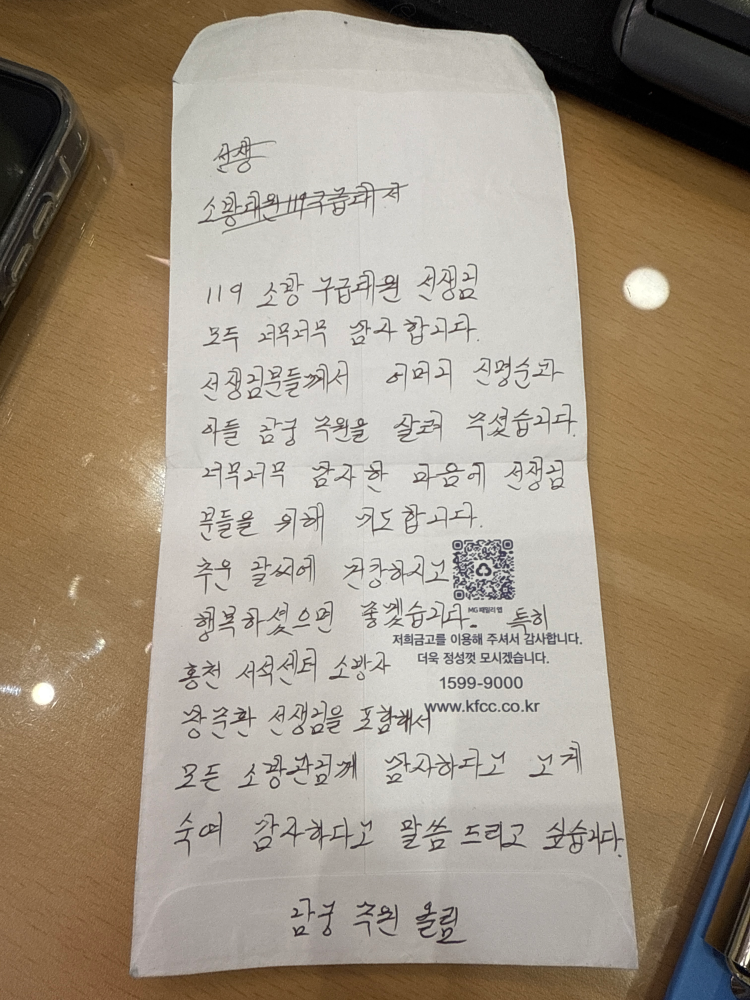 선생
소방대원 119 구급대 서
119 소방 구급대원 선생님
모두 너무너무 감사합니다.
선생님분들께서 어머니 신명순과
아들 남궁 주원을 살려 주셨습니다.
너무너무 감사한 마음에 선생님
분들을 위해 기도합니다.
추운 날씨에 건강하시고
행복하셨으면 좋겠습니다. 특히
MG 패밀리 앱
저희금고를 이용해 주셔서 감사합니다.
더욱 정성껏 모시겠습니다.
1599-9000
www.kfcc.co.kr
홍천 서석센터 소방사
선생님을 포함해서
모든 소방관님께 감사하다고 고개
숙여 감사하다고 말씀 드리고 싶습니다.
남궁 주원 올림